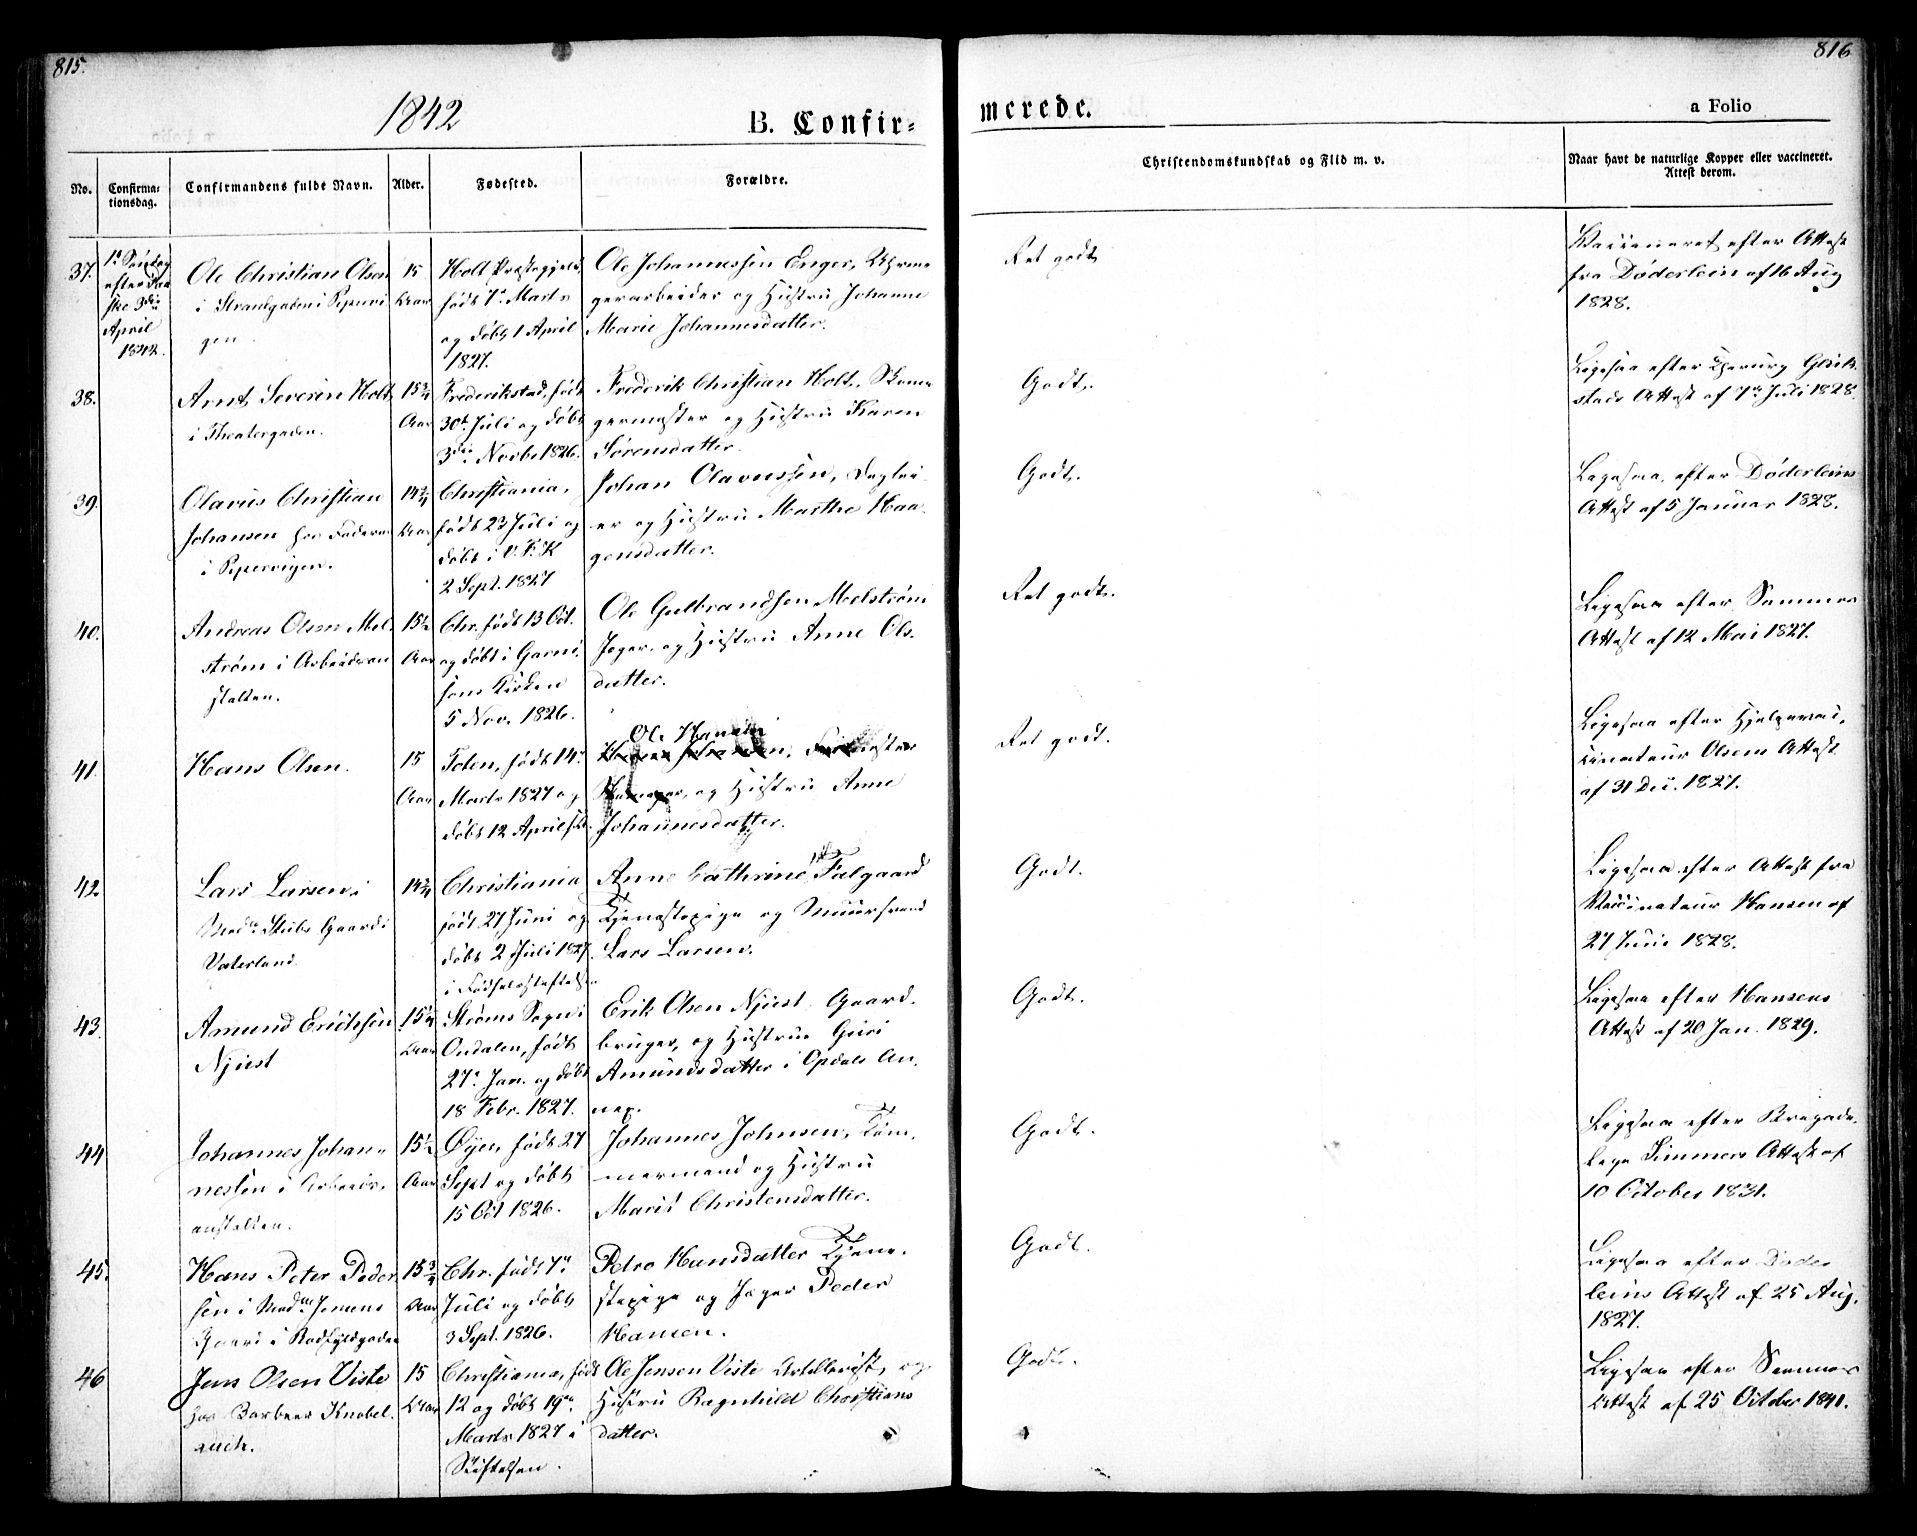 815.
816
1842
B. Confir-
merede.
a Folio
No.
Confirma-
tionsdag.
Confirmandens fulde Navn.
Alder.
Fødested.
Forældre.
Christendomskundskab og Flid m. v.
Naar havt de naturlige Kopper eller vaccineret.
Attest derom.
37.
1ste Søndag
efter Paa
ske 3die
April
1842.
Ole Christian Olsen
i Strandgaden i Pipervi
gen
15
Aar
Holt Præstegjeld,
født 7de Marts
og døbt 1 April
1827.
Ole Johannessen Enger,
gerarbeider og Hustru Johanne
Marie Johannesdatter.
Ret godt
Vaccineret efter Attest
fra Døderlein af 16 Aug
1828.
38.
Arnt Severin Holt
i Theatergaden.
15¾
Aar
Frederikstad, født
30te Juli og døbt
3die Novbr 1826.
Frederik Christian Holt, Skoma
germester og Hustru Karen
Sørensdatter.
Godt.
Ligesaa efter Chirurg Glück
stads Attest af 7de Juli 1828.
39.
Olavus Christian
Johansen hos Faderen
i Pipervigen.
14¾
Aar
Christiania,
født 23 Juli og
døbt i V. F. K
2 Sept. 1827
Johan Olavessen, Daglei
er og Hustru Marthe Haa
gensdatter.
Godt.
Ligesaa efter Døderleins
Attest af 5 Januar 1828.
40.
Andreas Olsen Mel
strøm i Arbeidsan
stalten.
15½
Aar
Chr. født 13 Oct.
og døbt i Garni
sons Kirken
5 Nov. 1826.
Ole Gulbrandsen Melstrøm
Jæger, og Hustru Anne Ols
datter.
Ret godt.
Ligesaa efter Sommer
Attest af 12 Mai 1827.
41.
Hans Olsen.
15
Aar
Toten, født 14de
Marts 1827 og
døbt 12 April s.A.
Ole Hansen
og Hustru Anne
Johannesdatter.
Ret godt.
Ligesaa efter Hjelpevac
cinateur Olsens Attest
af 31 Dec. 1827.
42
Lars Larsen i
Madm Stubs Gaard i
Vaterland.
14¾
Christiania
født 27 Juni og
døbt 2 Juli 1827
i Fødselsstiftelsen
Anne Cathrine Falgaard
Tjenestepige og Muursvend
Lars Larsen.
Godt.
Ligesaa efter Attest fra
Vaccinateur Hansen af
27 Juni 1828.
43.
Amund Erichsen
Njust
15¼
Aar
Strøms Sogn i
Ordalen, født
27de Jan. og døbt
18 Febr. 1827.
Erik Olsen Njust Gaard
bruger, og Hustrue Guri
Amundsdatter i Opdals An
nex.
Godt.
Ligesaa efter Hansens
Attest af 20 Jan. 1829.
44
Johannes Johan-
nessen i Arbeids
anstalten.
15½
Aar
Øyer, født 27
Sept og døbt
15 Oct 1826.
Johannes Johnsen, Tøm
mermand og Hustru
Marit Christensdatter.
Godt.
Ligesaa efter Brigade
læge Simmers Attest af
10 October 1831.
45.
Hans Peter Peder
sen i Madm Jensens
Gaard i Rødfyldgaden
15¾
Aar
Chr. født 7de
Juli og døbt
3 Sept. 1826.
Petro Hansdatter Tjene
stepige og Jæger Peder
Hansen.
Godt.
Ligesaa efter Døder
leins Attest af 25 Aug.
1827.
46
Jens Olsen Viste
hos Barbeer Knobel
auch.
15
Aar
Christiania, født
12 og døbt 19de
Marts 1827 i
Stiftelsen.
Ole Jensen Viste Artillerist, og
Hustru Ragnhild Christians
datter.
Godt.
Ligesaa efter Sommer
Attest af 25 October 1841.